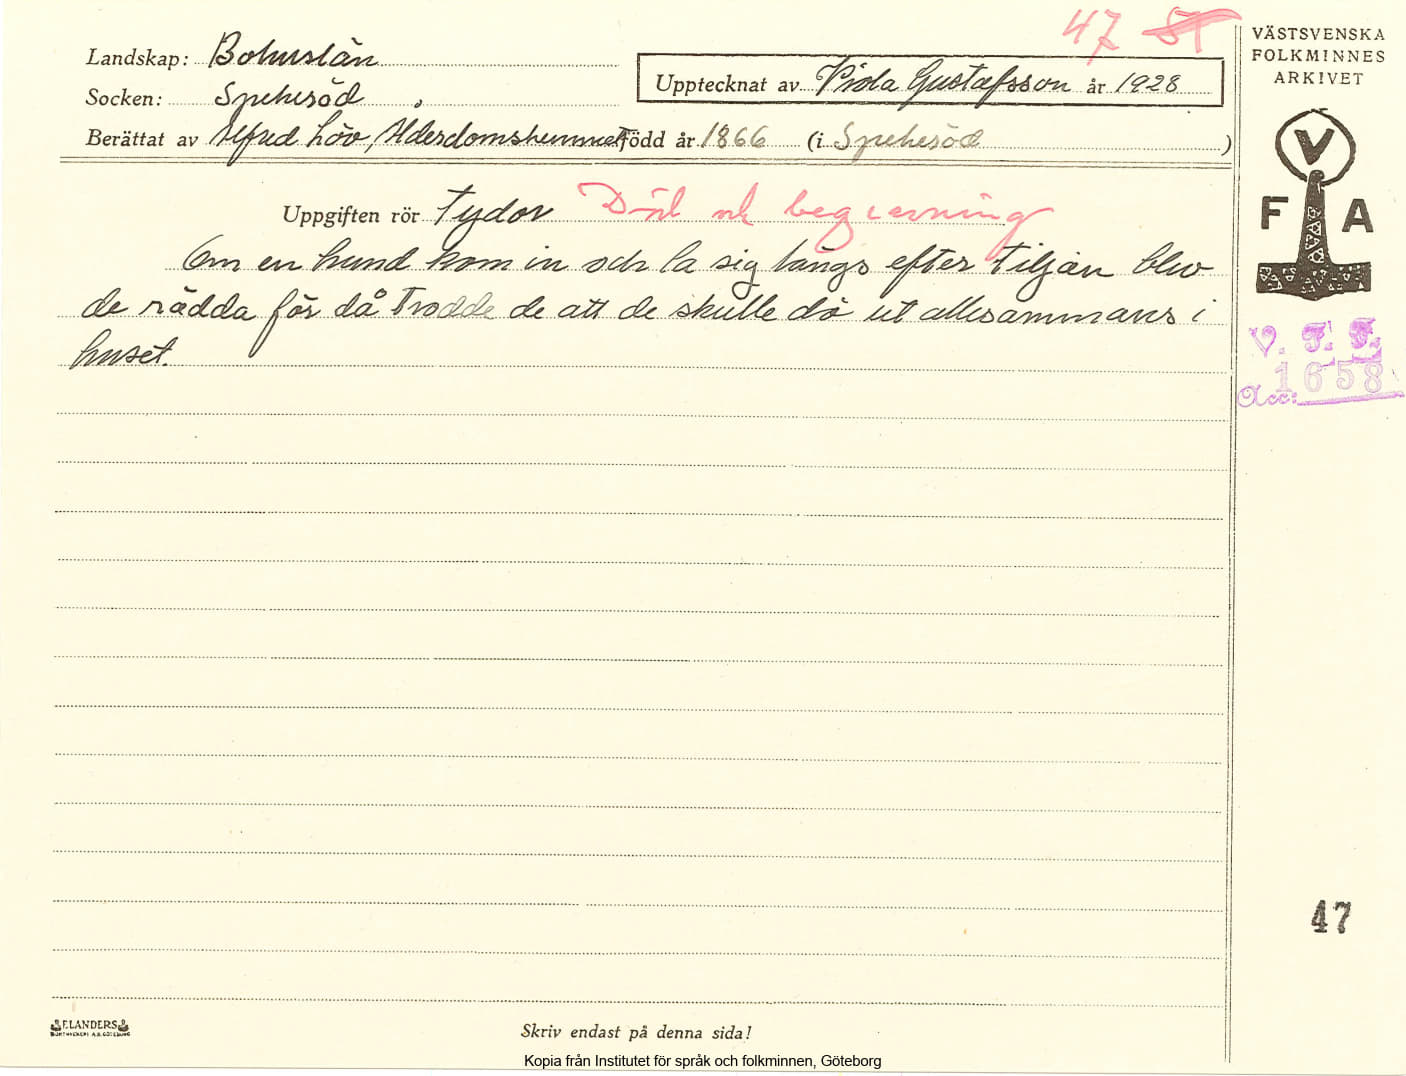 47 51
VÄSTSVENSKA
FOLKMINNES
ARKIVET
Landskap: Bohuslän
Upptecknat av Viola Gustafsson år 1928
Socken: Spekeröd
Berättat av Alfred Lööv, Ålderdomshemmet född år 1866 (i Spekeröd)
V
F A
Uppgiften rör Tydor Död och begravning
Om en hund kom in och la sig långs efter tiljan blev
de rädda för då trodde de att de skulle dö ut allesammans i
huset.
V. F. F.
Acc: 1658
47
ELANDERS
Skriv endast på denna sida!
Kopia från Institutet för språk och folkminnen, Göteborg